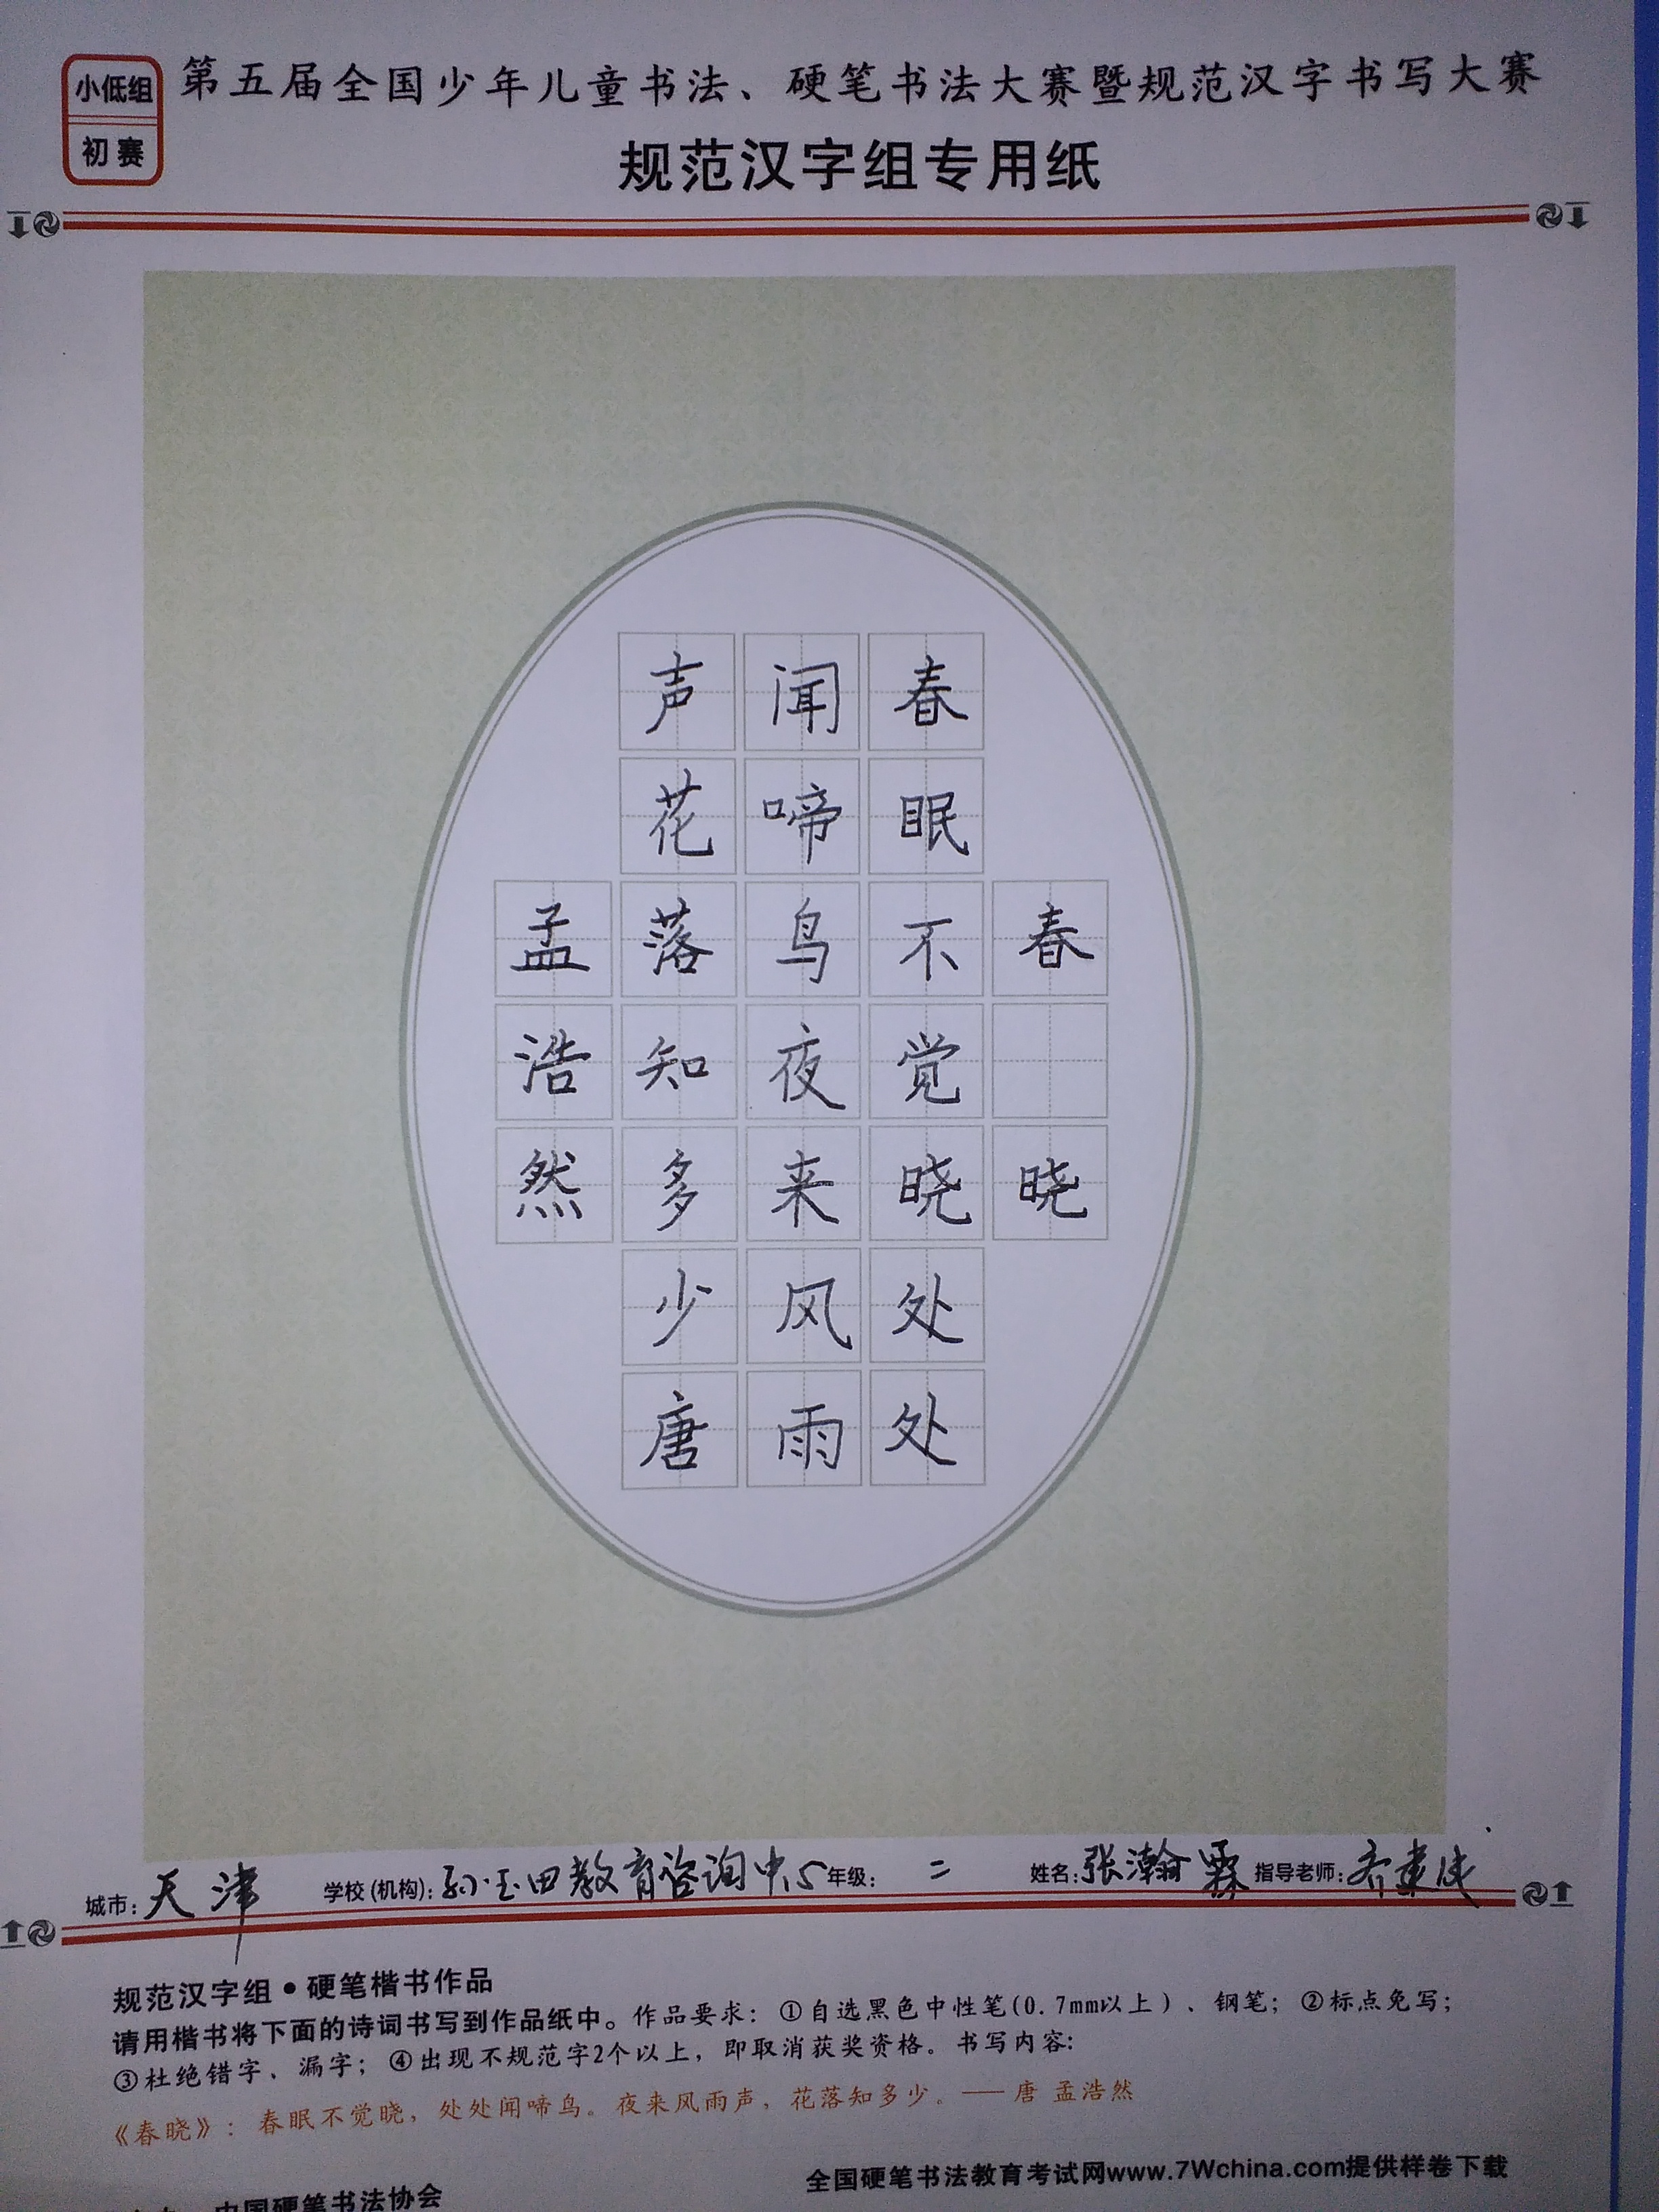 小低组
初赛
第五届全国少年儿童书法、硬笔书法大赛暨规范汉字书写大赛
规范汉字组专用纸
春晓
春眠不觉晓处处
闻啼鸟夜来风雨
声花落知多少唐
孟浩然
城市：天津 学校(机构)：孙玉田教育咨询中心 年级：二 姓名：张瀚霖 指导老师：齐建民
规范汉字组·硬笔楷书作品
请用楷书将下面的诗词书写到作品纸中。作品要求：①自选黑色中性笔(0.7mm以上)、钢笔；②标点免写；
③杜绝错字、漏字；④出现不规范字2个以上，即取消获奖资格。书写内容：
《春晓》：春眠不觉晓，处处闻啼鸟。夜来风雨声，花落知多少。——唐 孟浩然
全国硬笔书法教育考试网www.7Wchina.com提供样卷下载
中国硬笔书法协会